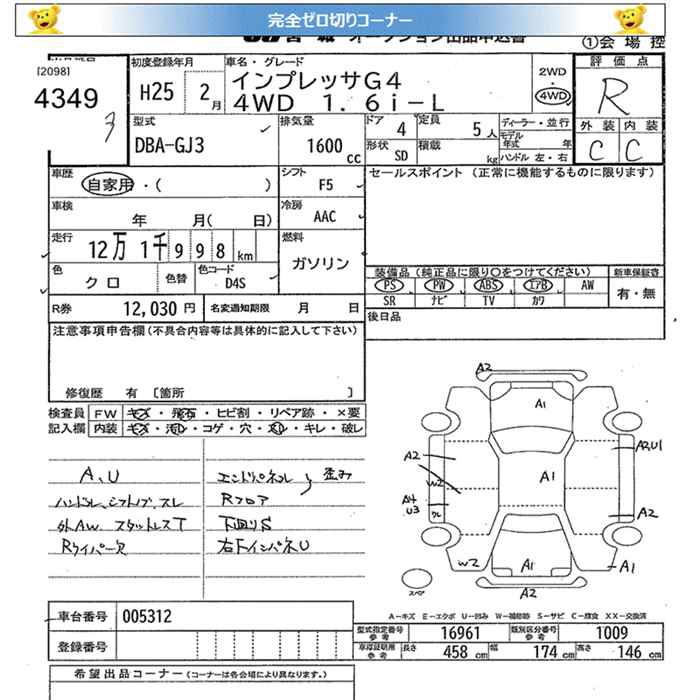 完全ゼロ切りコーナー
宮城 オークション出品申込書
①会場控
[2098]
4349
3
初度登録年月
H25 2月
車名・グレード
インプレッサG4
4WD 1.6i-L
2WD
・
4WD
評価点
R
外装 内装
C C
型式
DBA-GJ3
排気量
1600 cc
ドア 4
定員 5人
形状 SD
積載 kg
ディーラー・並行
モデル年式 年
ハンドル 左・右
車歴
自家用・( )
シフト
F5
セールスポイント (正常に機能するものに限ります)
車検
年 月( 日)
冷房
AAC
走行
12万1千998km
燃料
ガソリン
色
クロ
色替
色コード
D4S
装備品(純正品に限り○をつけてください)
新車保証書
PS PW ABS エアB AW
SR ナビ TV カワ
有・無
R券 12,030円
名変通知期限 月 日
後日品
注意事項申告欄(不具合内容等は具体的に記入して下さい)
修復歴 有 [箇所 ]
検査員記入欄
FW キズ・飛石・ヒビ割・リペア跡・×要
内装 キズ・汚レ・コゲ・穴・スレ・キレ・破レ
A、U
ハンドル、シフトノブ、スレ
外AW スタットレスT
Rワイパー欠
エンドパネル 歪み
Rフロア
下廻りS
右下インパネU
A2
A1
A2
W2
A4
U3
A1
A2U1
A2
W2
A1
A1
A2
スペア
A=キズ E=エクボ U=凹み W=補修跡 S=サビ C=腐食 XX=交換済
車台番号 005312
登録番号
型式指定番号 参考 16961
類別区分番号 参考 1009
車検証明用 参考 長さ 458cm 幅 174cm 高さ 146cm
希望出品コーナー(コーナーは各会場により異なります。)